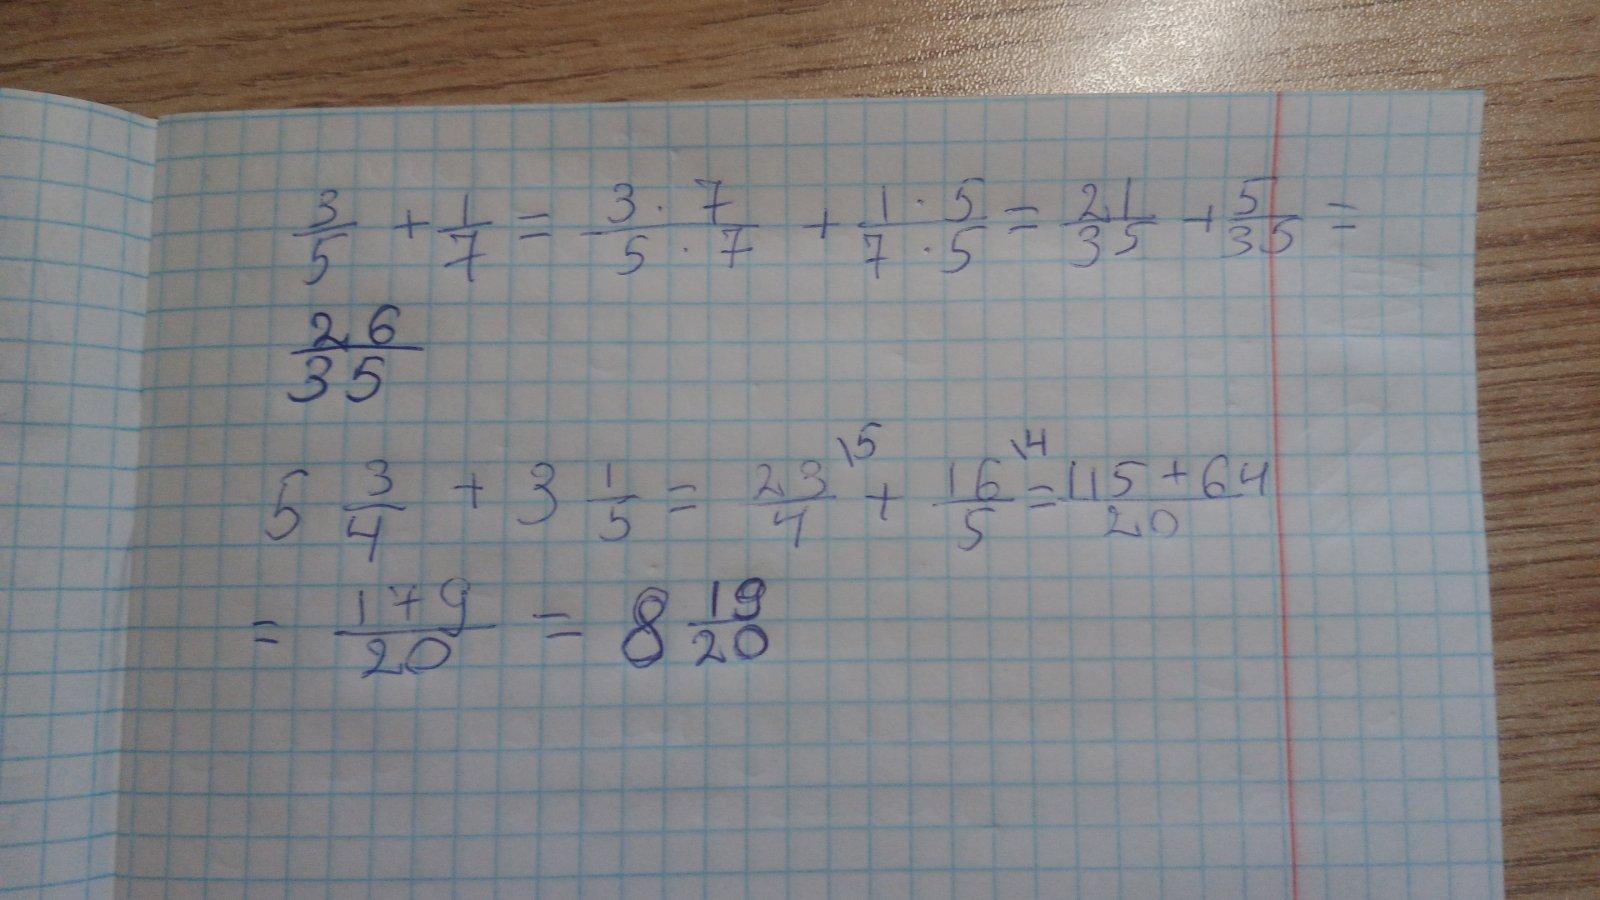 3/5 + 1/7 = 3 · 7/5 · 7 + 1 · 5/7 · 5 = 21/35 + 5/35 =
26/35
5 3/4 + 3 1/5 = 23/4 \5 + 16/5 \4 = 115 + 64/20
= 179/20 = 8 19/20